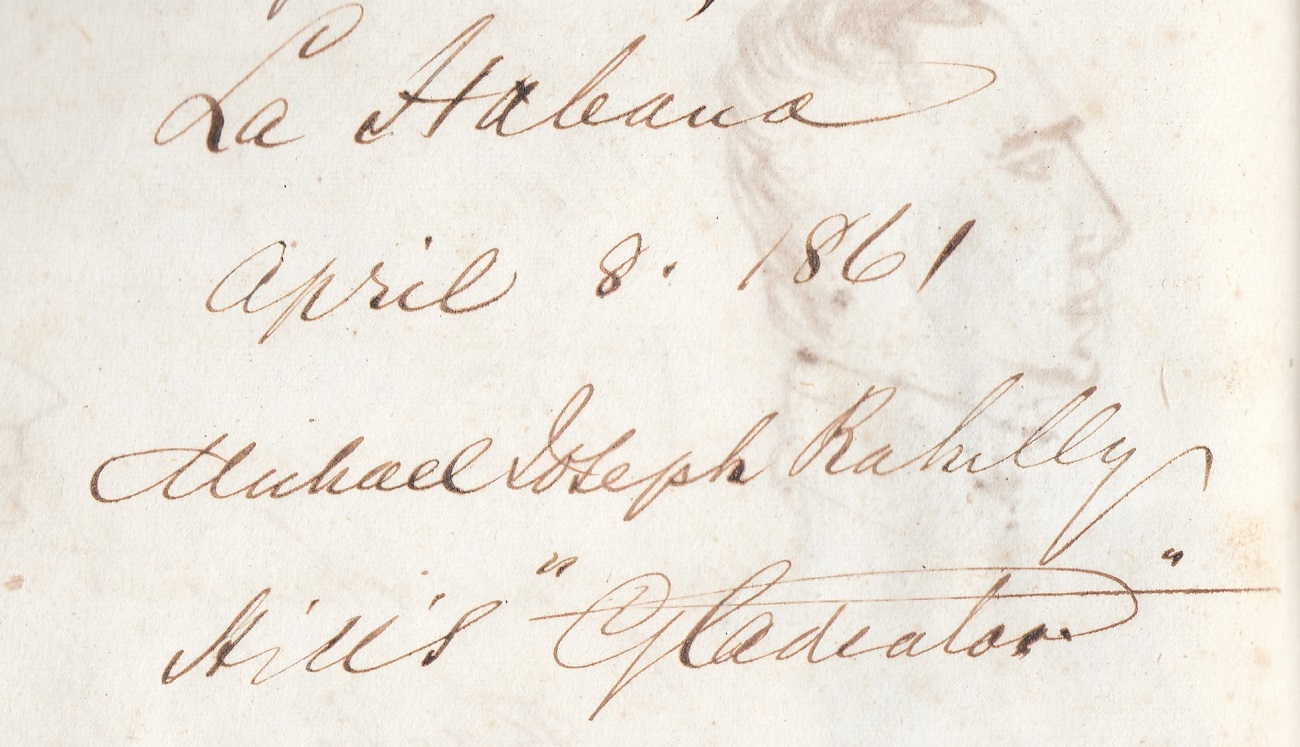 La Habana
April 8. 1861
Michael Joseph Rahilly
Hill's "Gladiator"